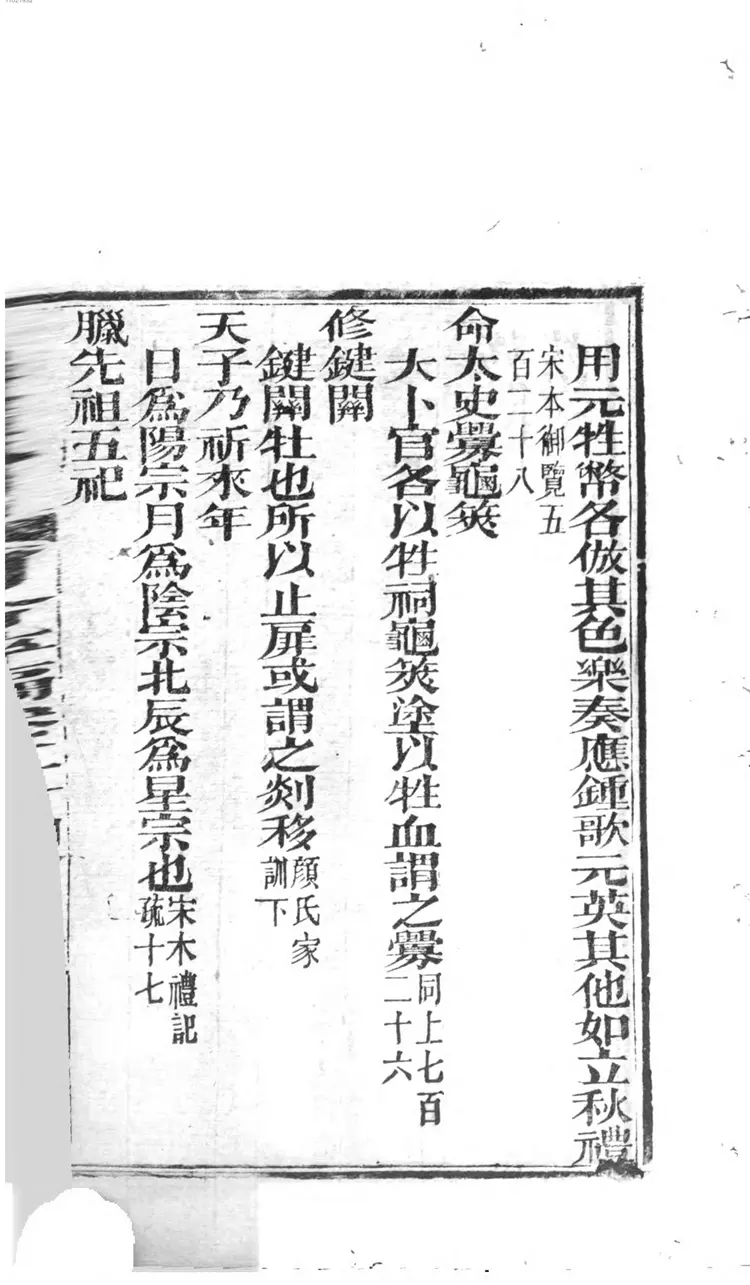 用元牲幣各倣其色樂奏應鍾歌元英其他如立秋禮
宋本御覽五
百二十八
命太史釁龜筴
大卜官各以牲祠龜筴塗以牲血謂之釁同上七百
二十六
修鍵關
鍵關牡也所以止扉或謂之剡移顏氏家
訓下
天子乃祈來年
日為陽宗月為陰宗北辰為星宗也宋本禮記
疏十七
臘先祖五祀